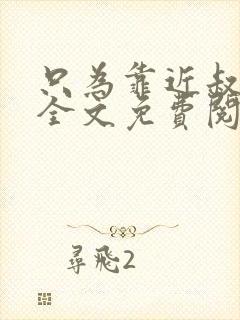 只為靠近叔
全文免費閱
尋飛2